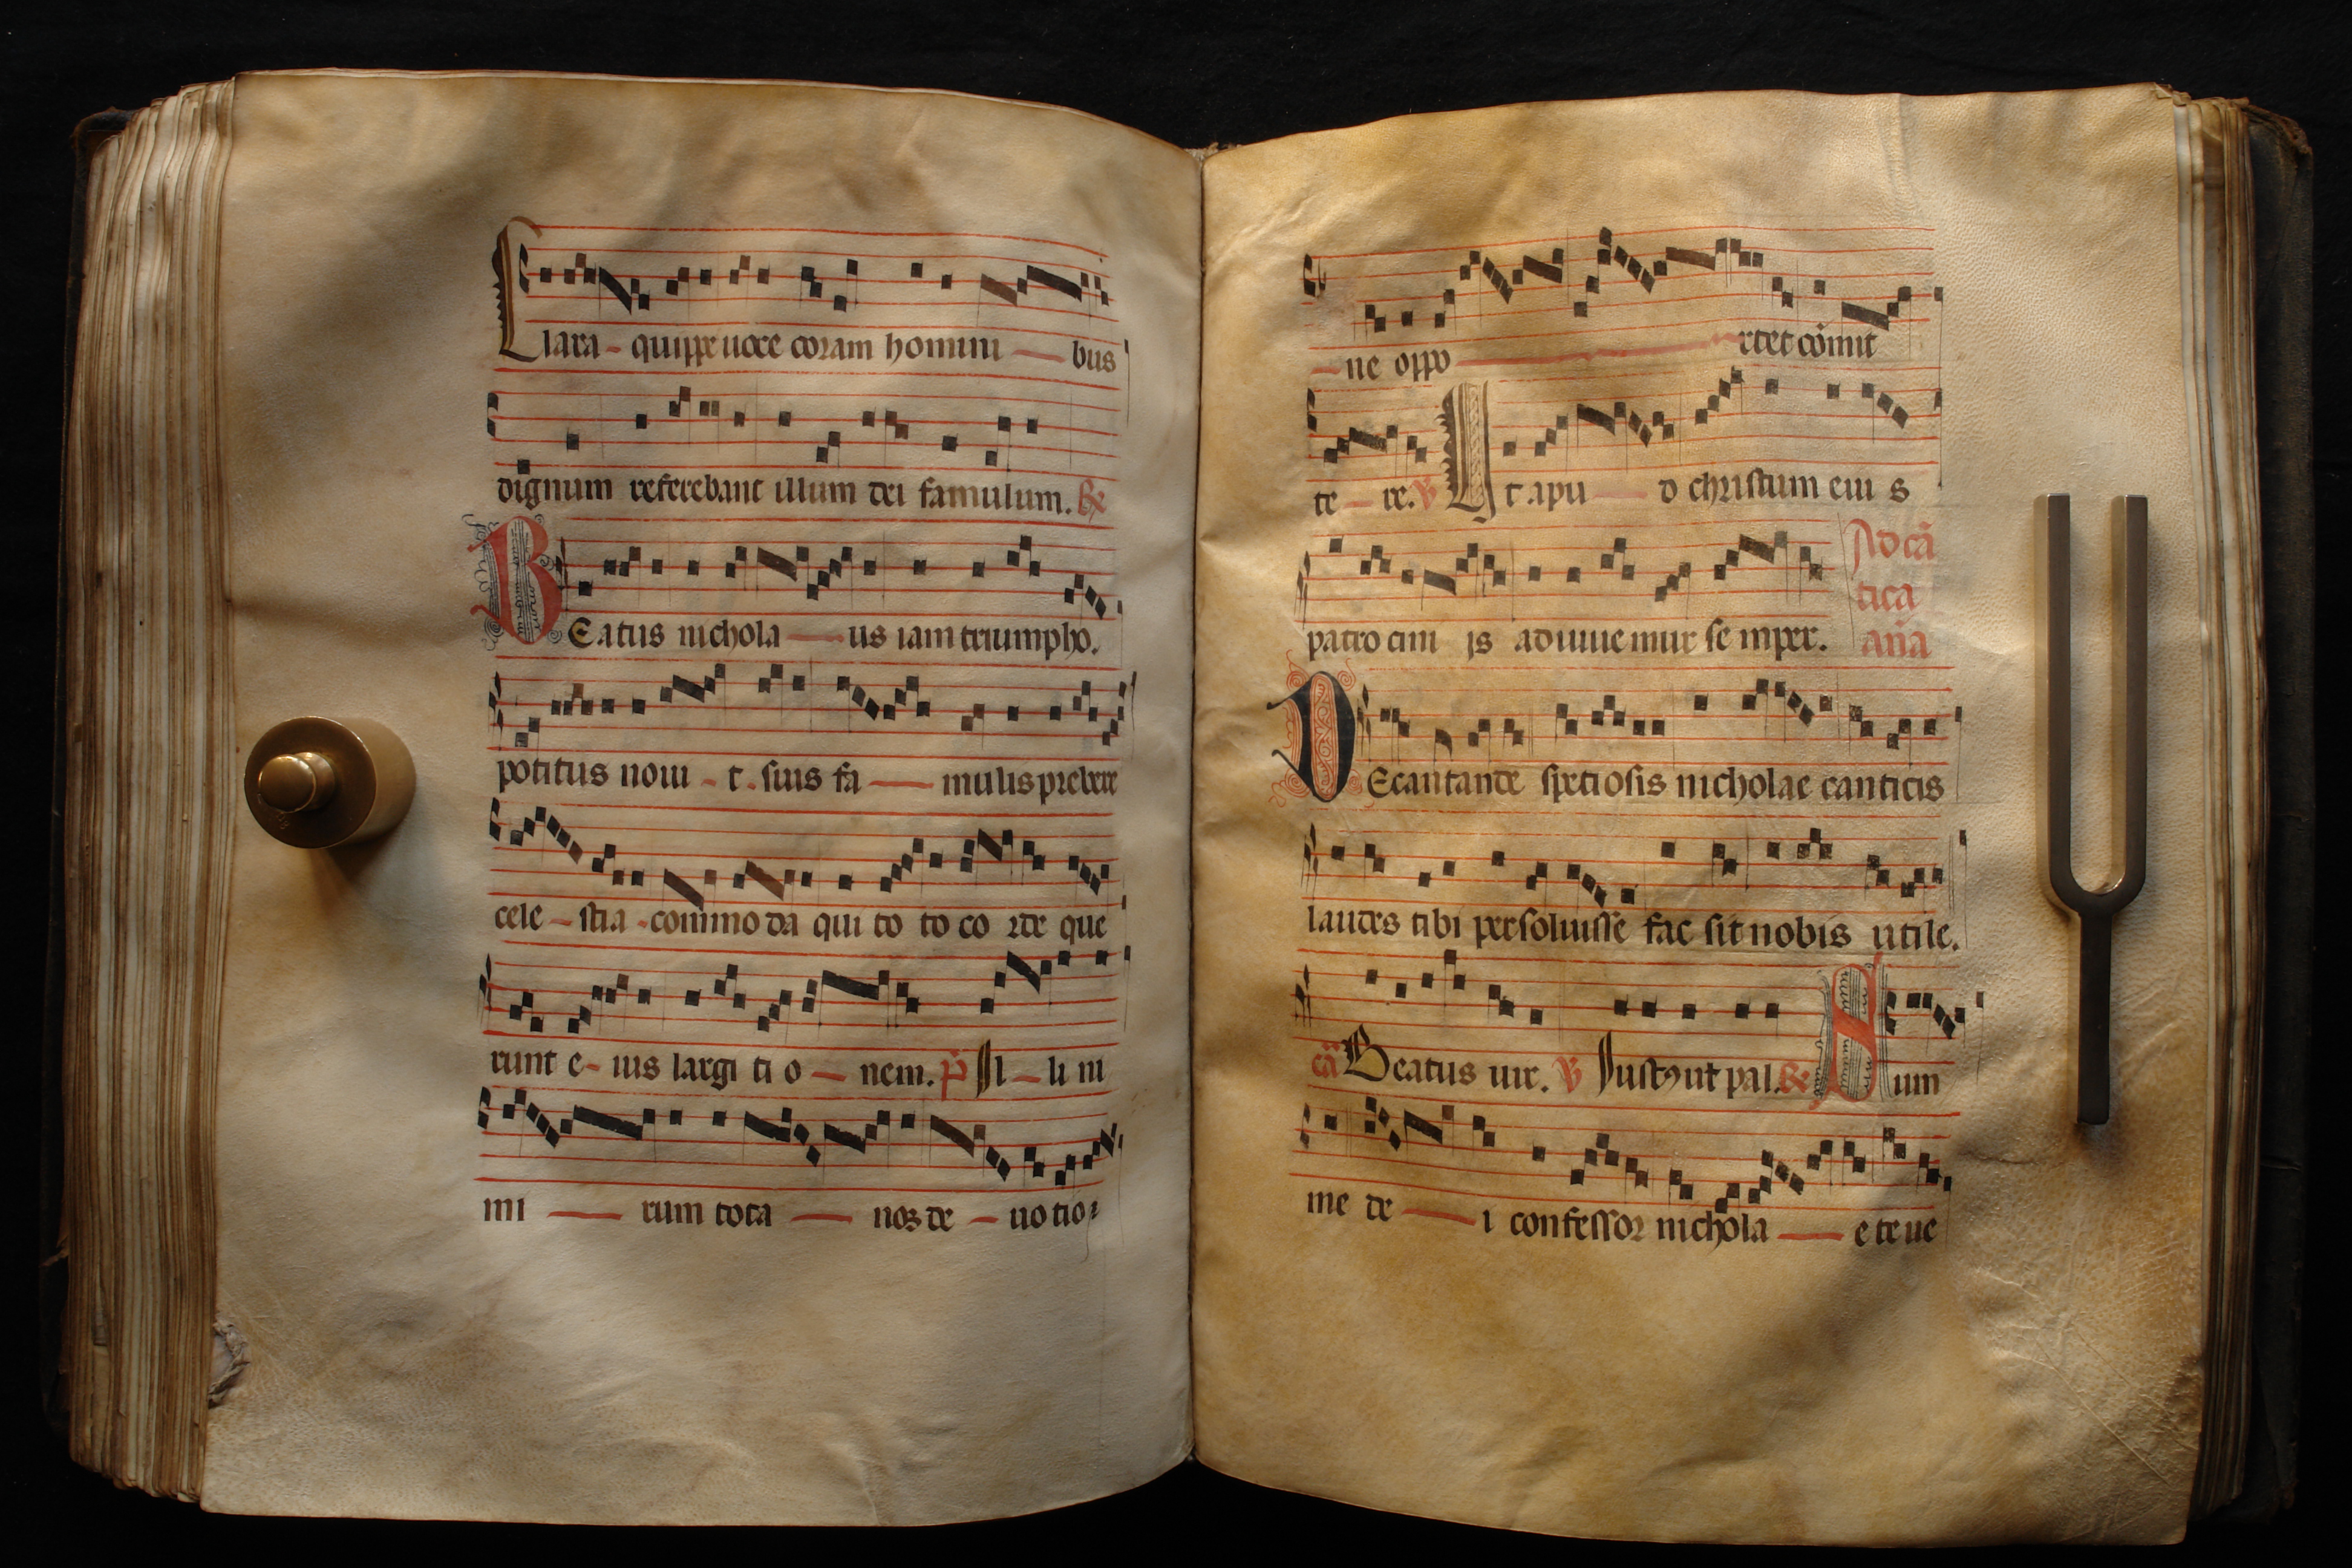 Clara - quippe uoce coram homini — bus
dignum referebant illum dei famulum. ℟
BEatus nichola — us iam triumpho.
potitus noui - t . suis fa — mulis prebere
cele - stia - commoda qui to to co rde que
runt e - ius largi ti o — nem. Il - li ni
mi — rum tota — nos de - uotio
- ne oppo — rtet cōmit
te - re. ℣ Ut apu — d christum eiu s
patrocini js adiuuemur semper.
Ad cā
tica
aña
DEcantande speciosis nicholae canticis
laudes tibi persoluisse fac sit nobis utile.
cā Beatus uir. ℣ Iustꝰ ut pal. ℟ Sum
me de — i confessor nichola — e te ue